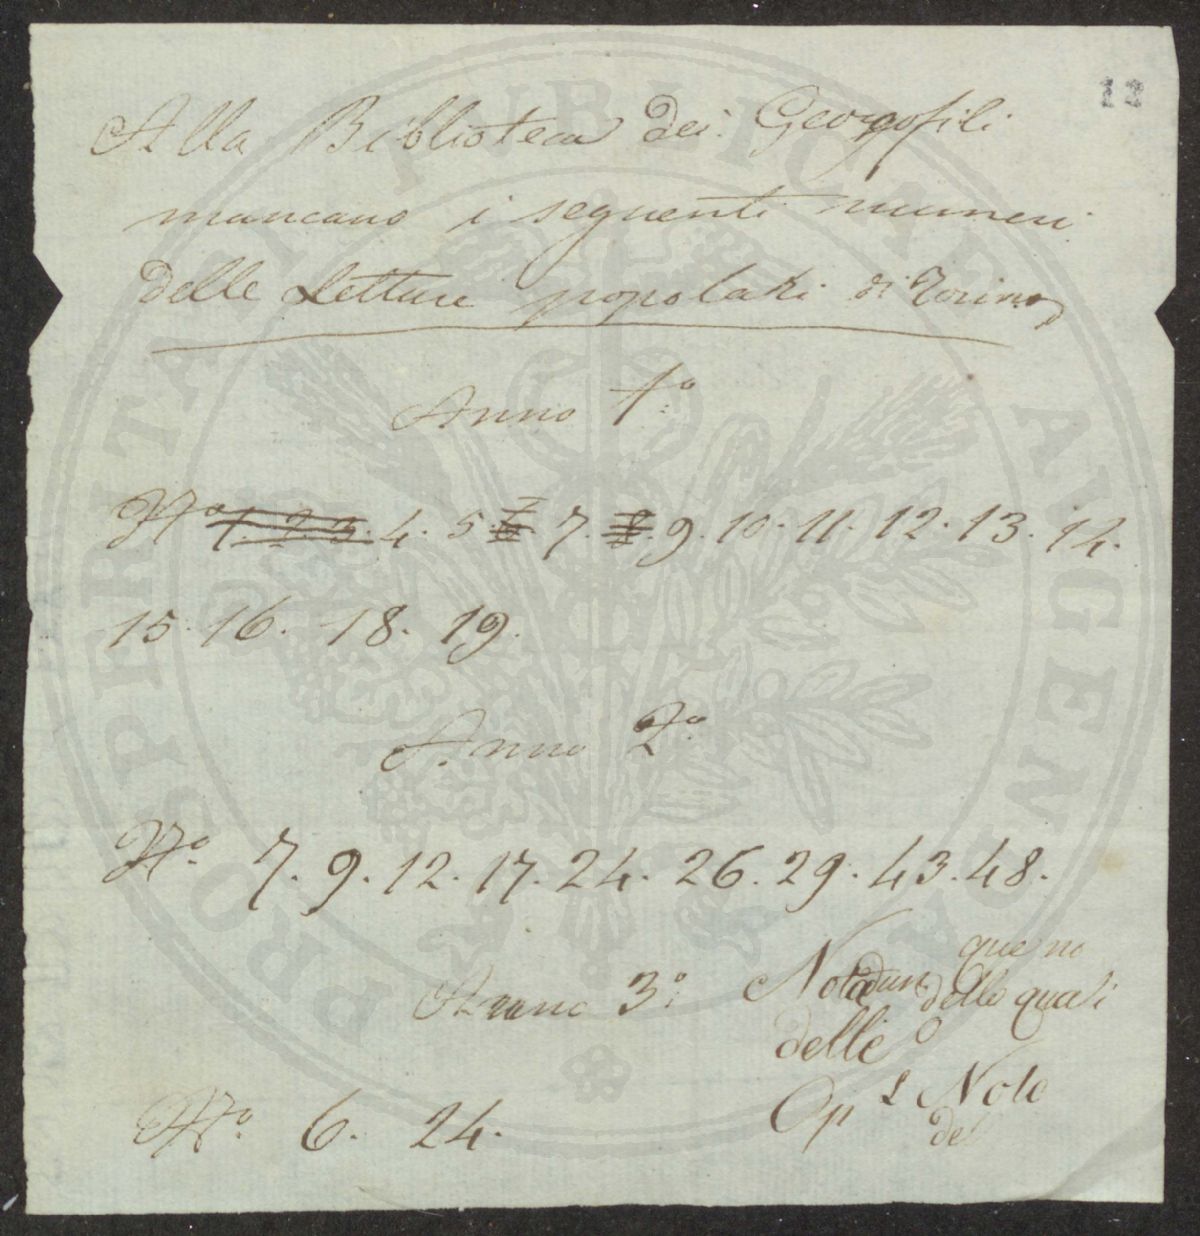 12
Alla Biblioteca dei Georgofili
mancano i seguenti numeri
delle Letture popolari di Torino
Anno 1.º
Nº 1. 2. 3. 4. 5. 6. 7. 8. 9. 10. 11. 12. 13. 14.
15. 16. 18. 19.
Anno 2.º
Nº. 7. 9. 12. 17. 24. 26. 29. 43. 48.
Anno 3.º
Nº. 6. 24.
que no
Nota dun delle quali
delle o
Op Note
del
PROSPERITATI PVBLICAE AVGENDAE